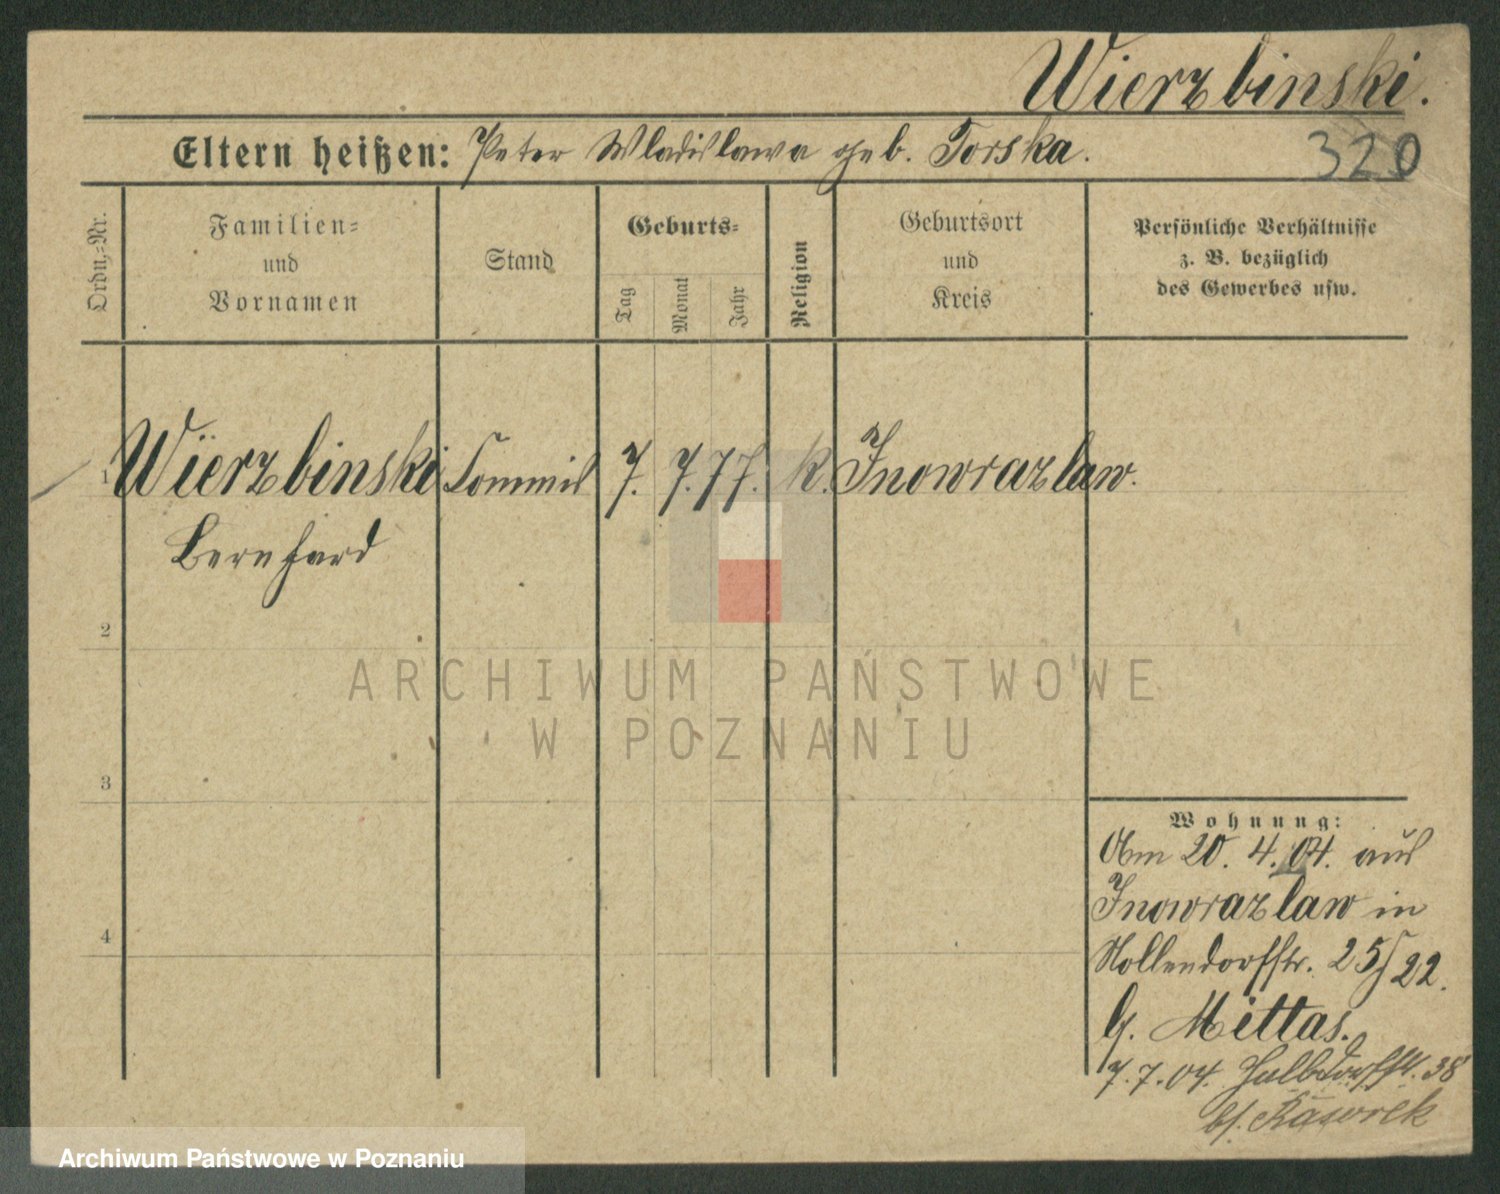 Wierzbinski.
Eltern heißen: Peter Wladislawa geb. Torska.
320
Ordn.-Nr.
Familien-
und
Vornamen
Stand
Geburts-
Tag
Monat
Jahr
Religion
Geburtsort
und
Kreis
Persönliche Verhältnisse
z. B. bezüglich
des Gewerbes usw.
1 Wierzbinski Commis 7. 7. 77. k. Inowrazlaw.
Bernhard
2
3
4
ARCHIWUM PAŃSTWOWE
W POZNANIU
Wohnung:
Am 20. 4. 04. aus
Inowrazlaw in
Nollendorffstr. 25/22.
b. Mittas.
7.7.04. Halbdorfstr. 38
bei
Archiwum Państwowe w Poznaniu